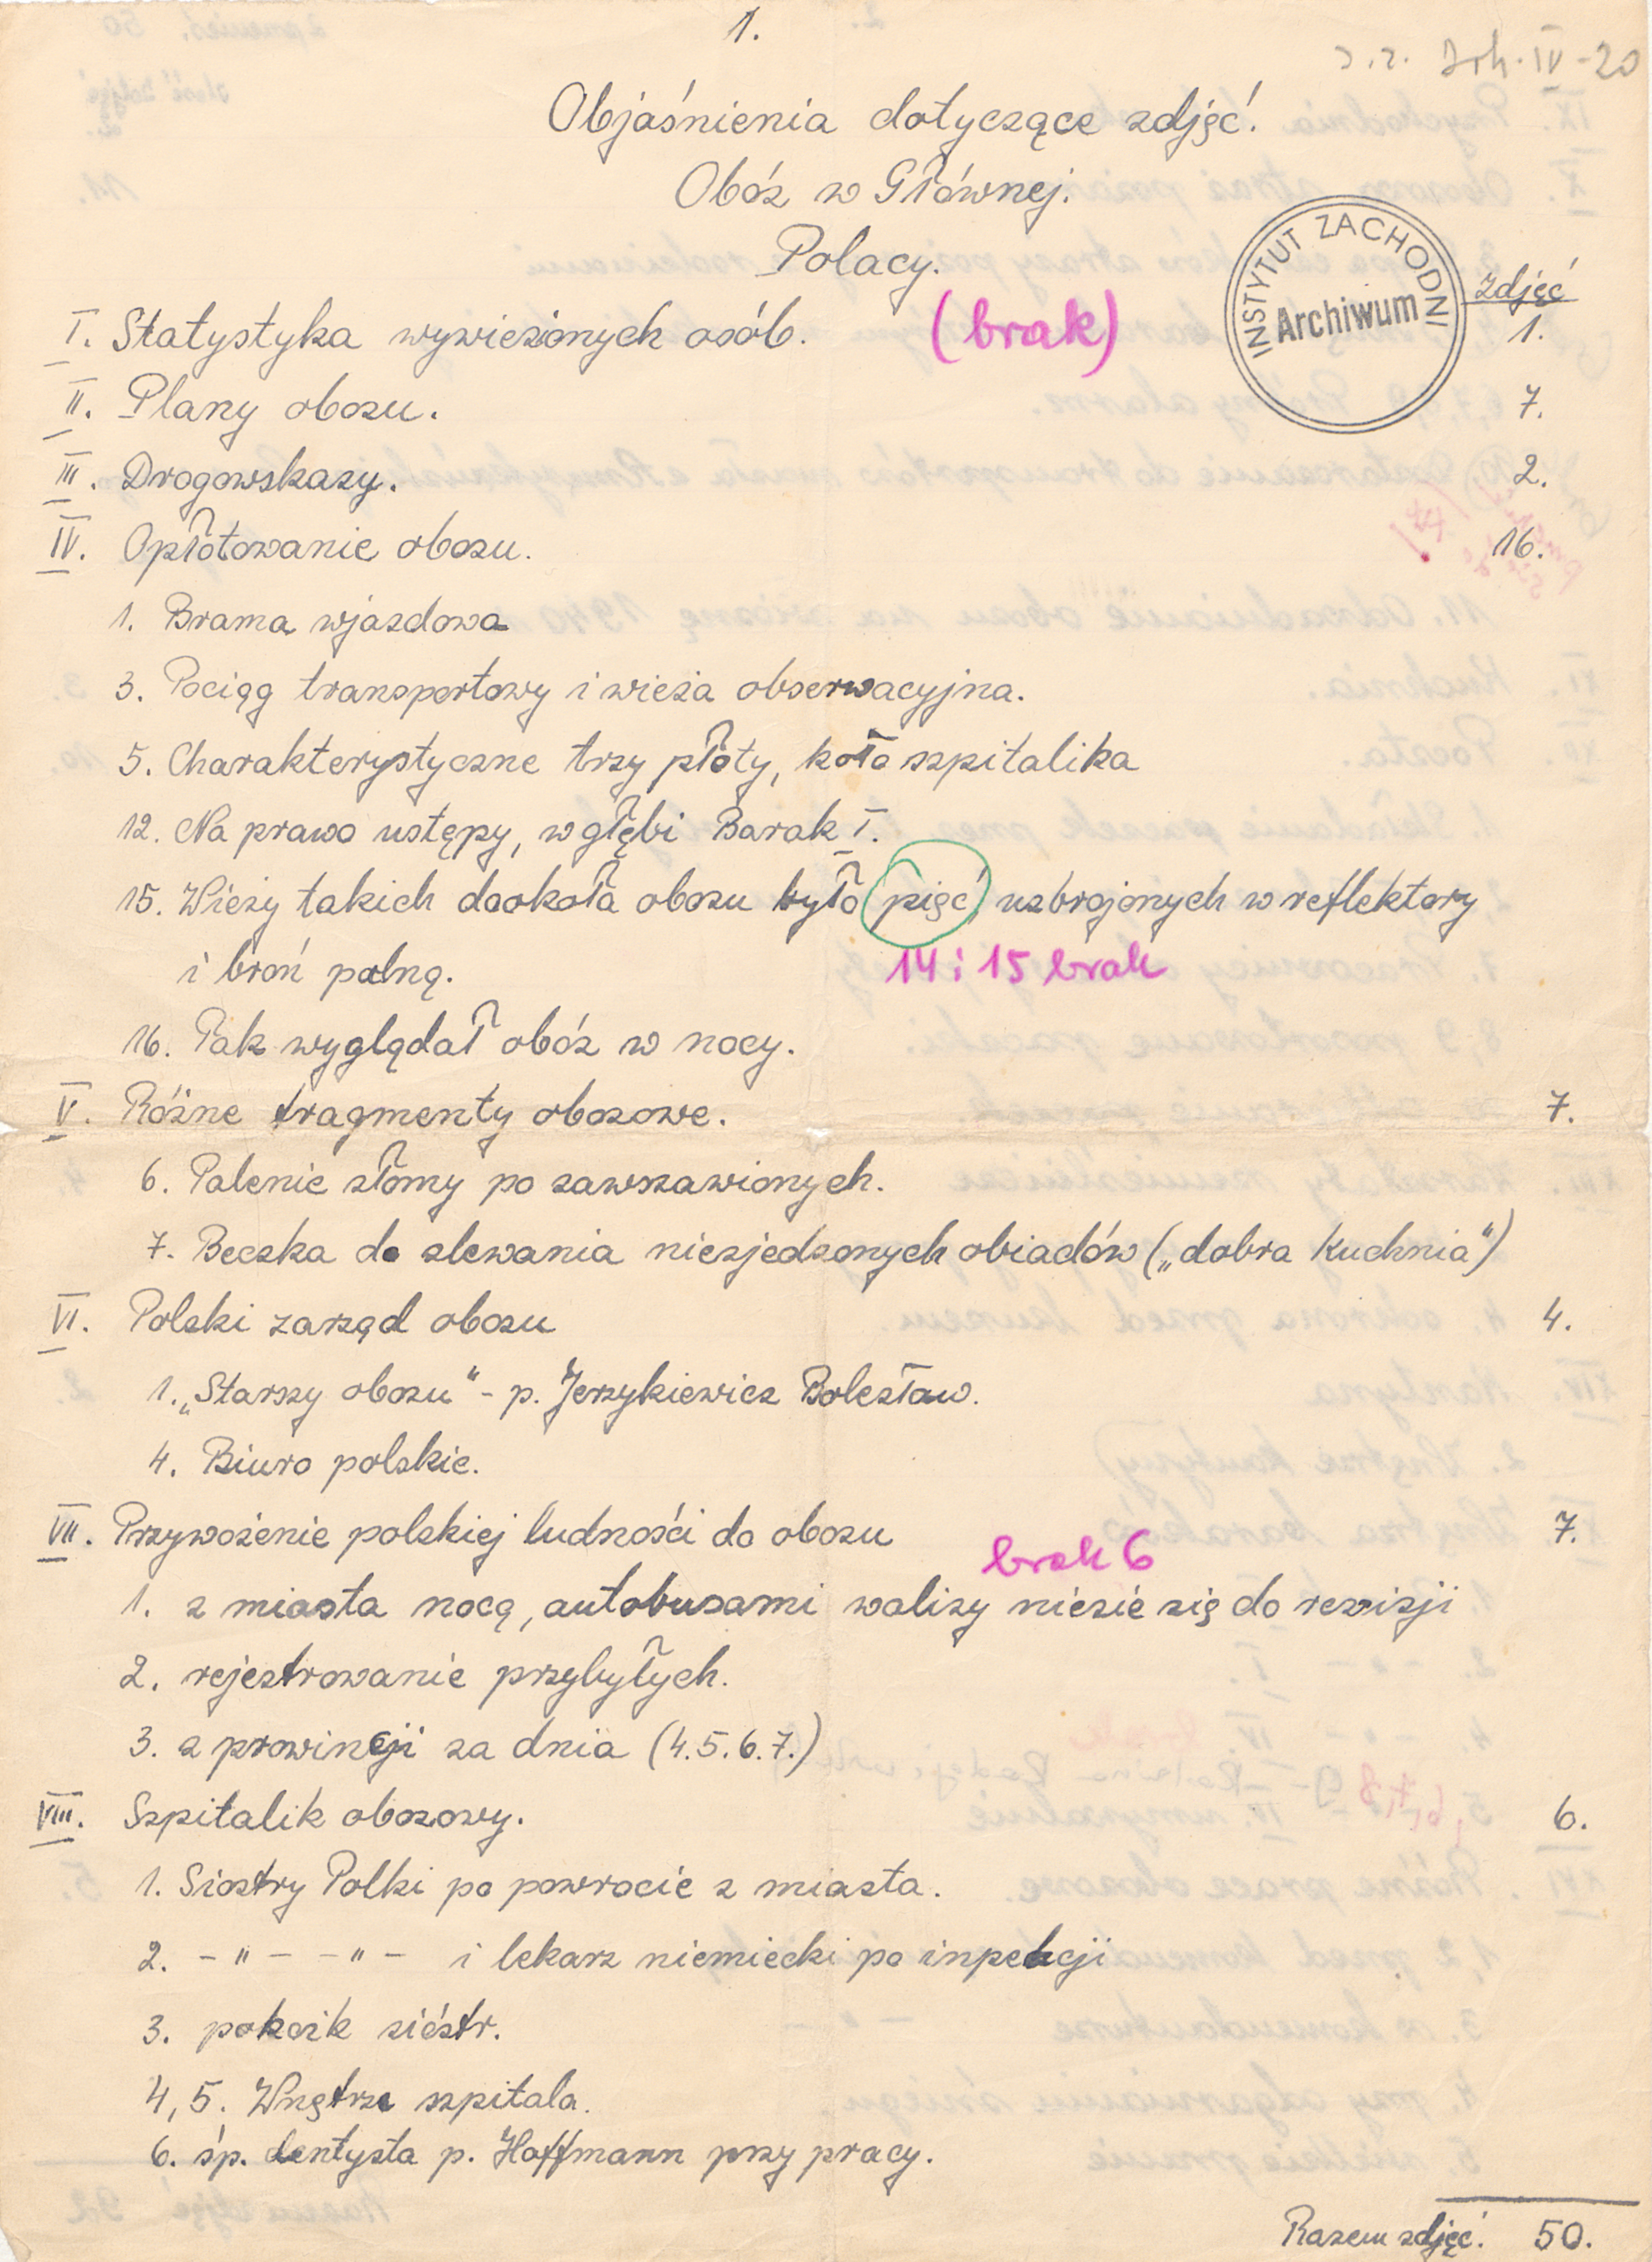 1.
Objaśnienia dotyczące zdjęć.
Obóz w Głównej.
Polacy.
INSTYTUT ZACHODNI
Archiwum
zdjęć
I. Statystyka wywiezionych osób. (brak) 1.
II. Plany obozu. 7.
III. Drogowskazy. 2.
IV. Opłotowanie obozu. 16.
1. Brama wjazdowa
3. Pociąg transportowy i wieża obserwacyjna.
5. Charakterystyczne trzy płoty, koło szpitalika
12. Na prawo ustępy, w głębi Barak I.
15. Wieży takich dookoła obozu było pięć uzbrojonych w reflektory
i broń palną. 14 i 15 brak
16. Tak wyglądał obóz w nocy.
V. Różne fragmenty obozowe. 7.
6. Palenie słomy po zawszawionych.
7. Beczka do zlewania niezjedzonych obiadów („dobra kuchnia")
VI. Polski zarząd obozu 4.
1. „Starszy obozu" - p. Jerzykiewicz Bolesław.
4. Biuro polskie.
VII. Przywożenie polskiej ludności do obozu 7.
brak 6
1. z miasta nocą, autobusami walizy niesie się do rewizji
2. rejestrowanie przybyłych.
3. z prowincji za dnia (4.5.6.7.)
VIII. Szpitalik obozowy. 6.
1. Siostry Polki po powrocie z miasta.
2. - " - - " - i lekarz niemiecki po inpekcji
3. pokoik sióstr.
4, 5. Wnętrze szpitala.
6. śp. dentysta p. Hoffmann przy pracy.
Razem zdjęć. 50.